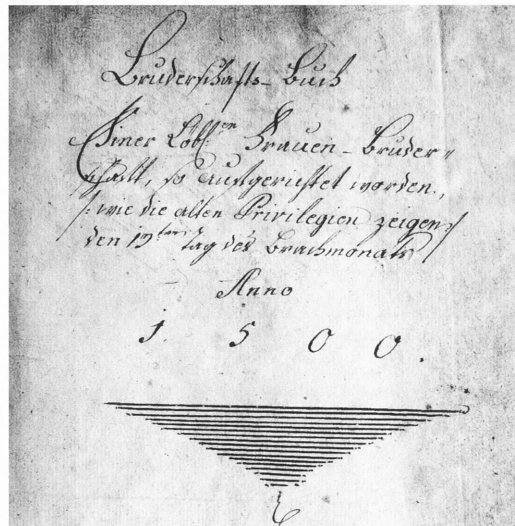 Bruderschafts-Buch
Einer Löbl:en Frauen-Bruder-
schafft, so aufgerichtet worden,
/: wie die alten Privilegien zeigen :/
den 19ten Tag des Brachmonats
Anno
1500.